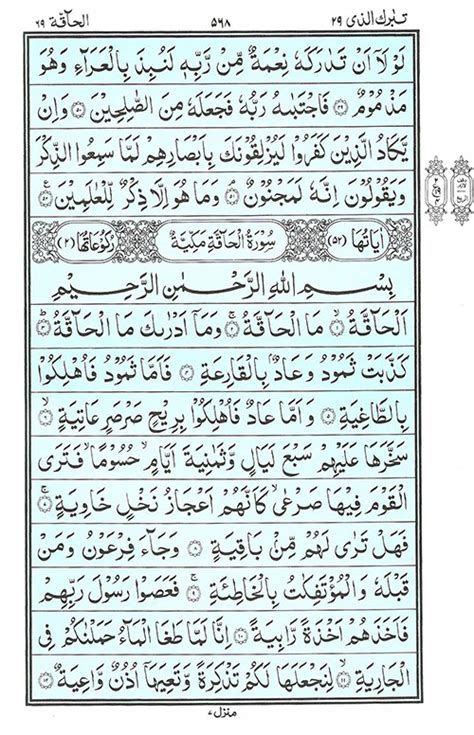 تبٰرك الذی ٢٩ ٥٦٨ الحآقة ٦٩
لَوْلَاۤ اَنْ تَدٰرَكَهٗ نِعْمَةٌ مِّنْ رَّبِّهٖ لَنُبِذَ بِالْعَرَآءِ وَهُوَ
مَذْمُوْمٌ ﴿٤٩﴾ فَاجْتَبٰىهُ رَبُّهٗ فَجَعَلَهٗ مِنَ الصّٰلِحِيْنَ ﴿٥٠﴾ وَاِنْ
يَّكَادُ الَّذِيْنَ كَفَرُوْا لَيُزْلِقُوْنَكَ بِاَبْصَارِهِمْ لَمَّا سَمِعُوا الذِّكْرَ
وَيَقُوْلُوْنَ اِنَّهٗ لَمَجْنُوْنٌ ﴿٥١﴾ وَمَا هُوَ اِلَّا ذِكْرٌ لِّلْعٰلَمِيْنَ ﴿٥٢﴾
اٰيَاتُهَا (٥٢) سُوْرَةُ الْحَآقَّةِ مَكِّيَّةٌ رُكُوْعَاتُهَا (٢)
بِسْمِ اللهِ الرَّحْمٰنِ الرَّحِيْمِ
اَلْحَآقَّةُ ﴿١﴾ مَا الْحَآقَّةُ ﴿٢﴾ وَمَاۤ اَدْرٰىكَ مَا الْحَآقَّةُ ﴿٣﴾
كَذَّبَتْ ثَمُوْدُ وَعَادٌۢ بِالْقَارِعَةِ ﴿٤﴾ فَاَمَّا ثَمُوْدُ فَاُهْلِكُوْا
بِالطَّاغِيَةِ ﴿٥﴾ وَاَمَّا عَادٌ فَاُهْلِكُوْا بِرِيْحٍ صَرْصَرٍ عَاتِيَةٍ ﴿٦﴾
سَخَّرَهَا عَلَيْهِمْ سَبْعَ لَيَالٍ وَّثَمٰنِيَةَ اَيَّامٍ حُسُوْمًا فَتَرَى
الْقَوْمَ فِيْهَا صَرْعٰى كَاَنَّهُمْ اَعْجَازُ نَخْلٍ خَاوِيَةٍ ﴿٧﴾
فَهَلْ تَرٰى لَهُمْ مِّنْۢ بَاقِيَةٍ ﴿٨﴾ وَجَآءَ فِرْعَوْنُ وَمَنْ
قَبْلَهٗ وَالْمُؤْتَفِكٰتُ بِالْخَاطِئَةِ ﴿٩﴾ فَعَصَوْا رَسُوْلَ رَبِّهِمْ
فَاَخَذَهُمْ اَخْذَةً رَّابِيَةً ﴿١٠﴾ اِنَّا لَمَّا طَغَا الْمَآءُ حَمَلْنٰكُمْ فِى
الْجَارِيَةِ ﴿١١﴾ لِنَجْعَلَهَا لَكُمْ تَذْكِرَةً وَّتَعِيَهَاۤ اُذُنٌ وَّاعِيَةٌ ﴿١٢﴾
منزل ٧